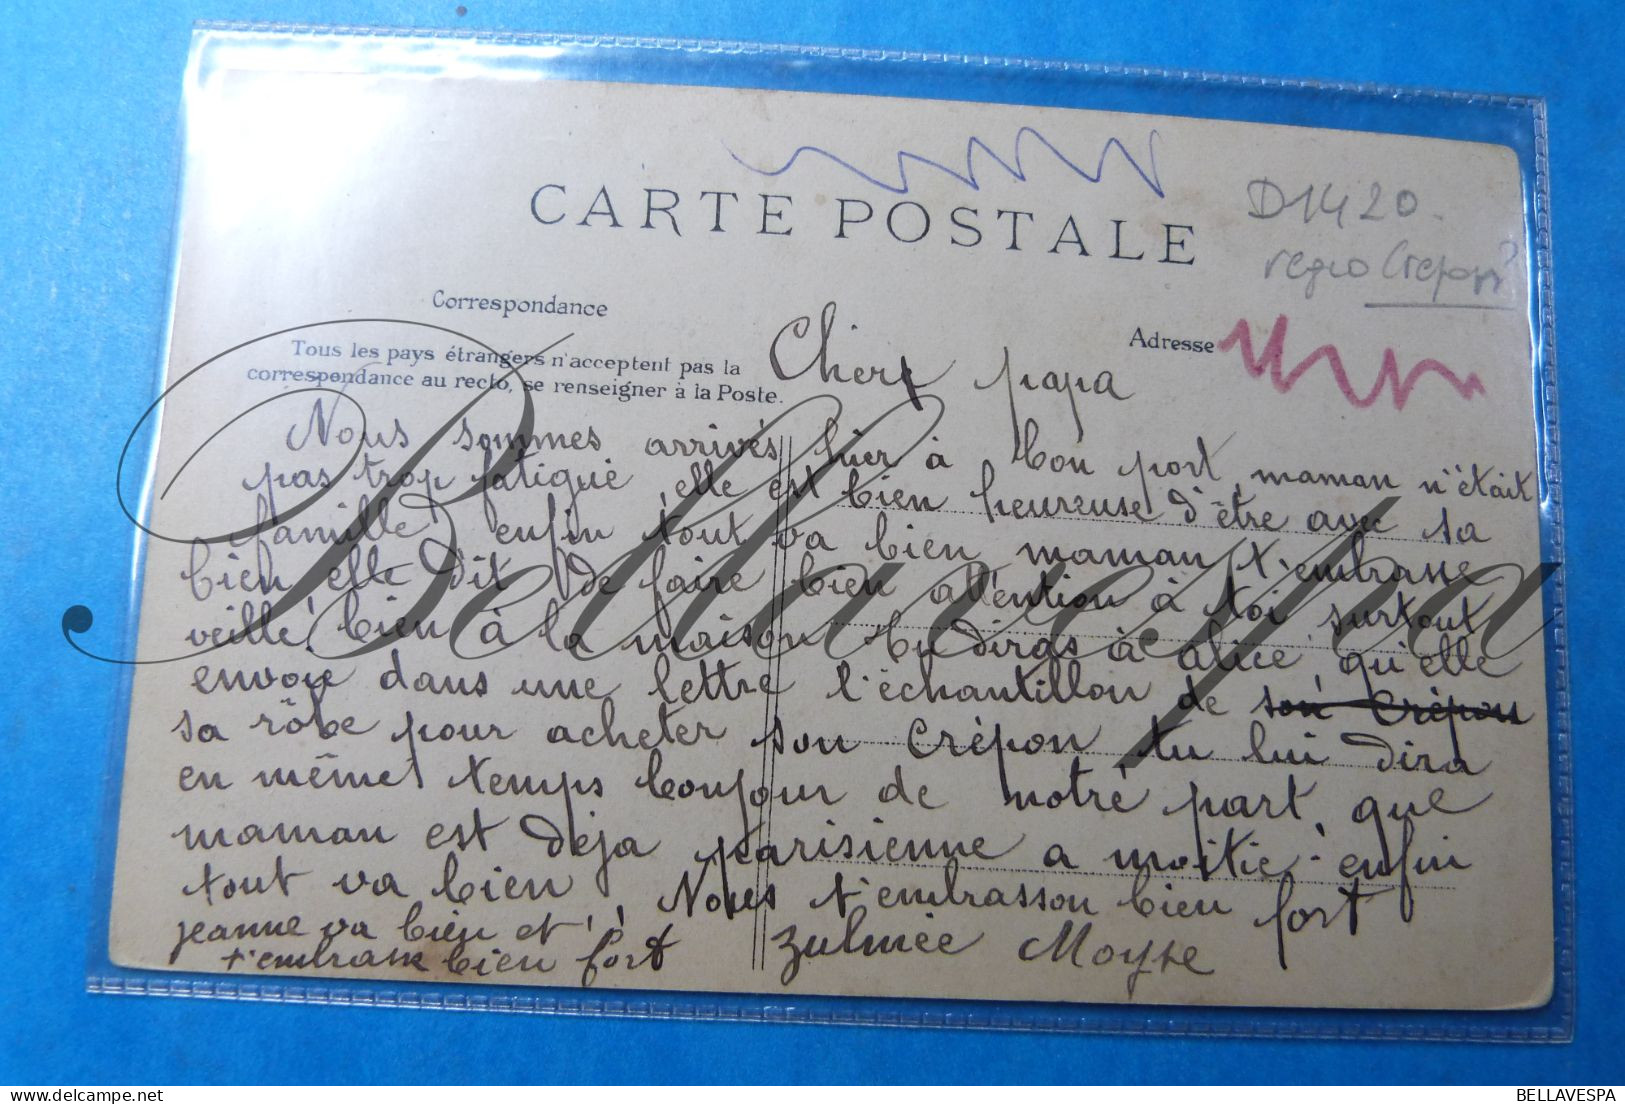 CARTE POSTALE
D1420.
regio Crepon?
Correspondance
Adresse
Tous les pays étrangers n'acceptent pas la
correspondance au recto, se renseigner à la Poste.
Cher papa
Nous sommes arrivés hier à bon port, maman n'était
pas trop fatigué, elle est bien heureuse d'être avec sa
famille, enfin tout va bien maman t'embrasse
bien, elle dit de faire bien attention à toi surtout
veille bien à la maison tu diras à alice, qu'elle
envoie dans une lettre l'échantillon de son Crépon
sa rôbe pour acheter son crépon, tu lui dira
en même temps bonjour de notre part, que
maman est déja parisienne a moitié. enfin
tout va bien, Nous t'embrasson bien fort
jeanne va bien et
t'embrasse bien fort
zulmée Moyse
Bellavespa
BELLAVESPA